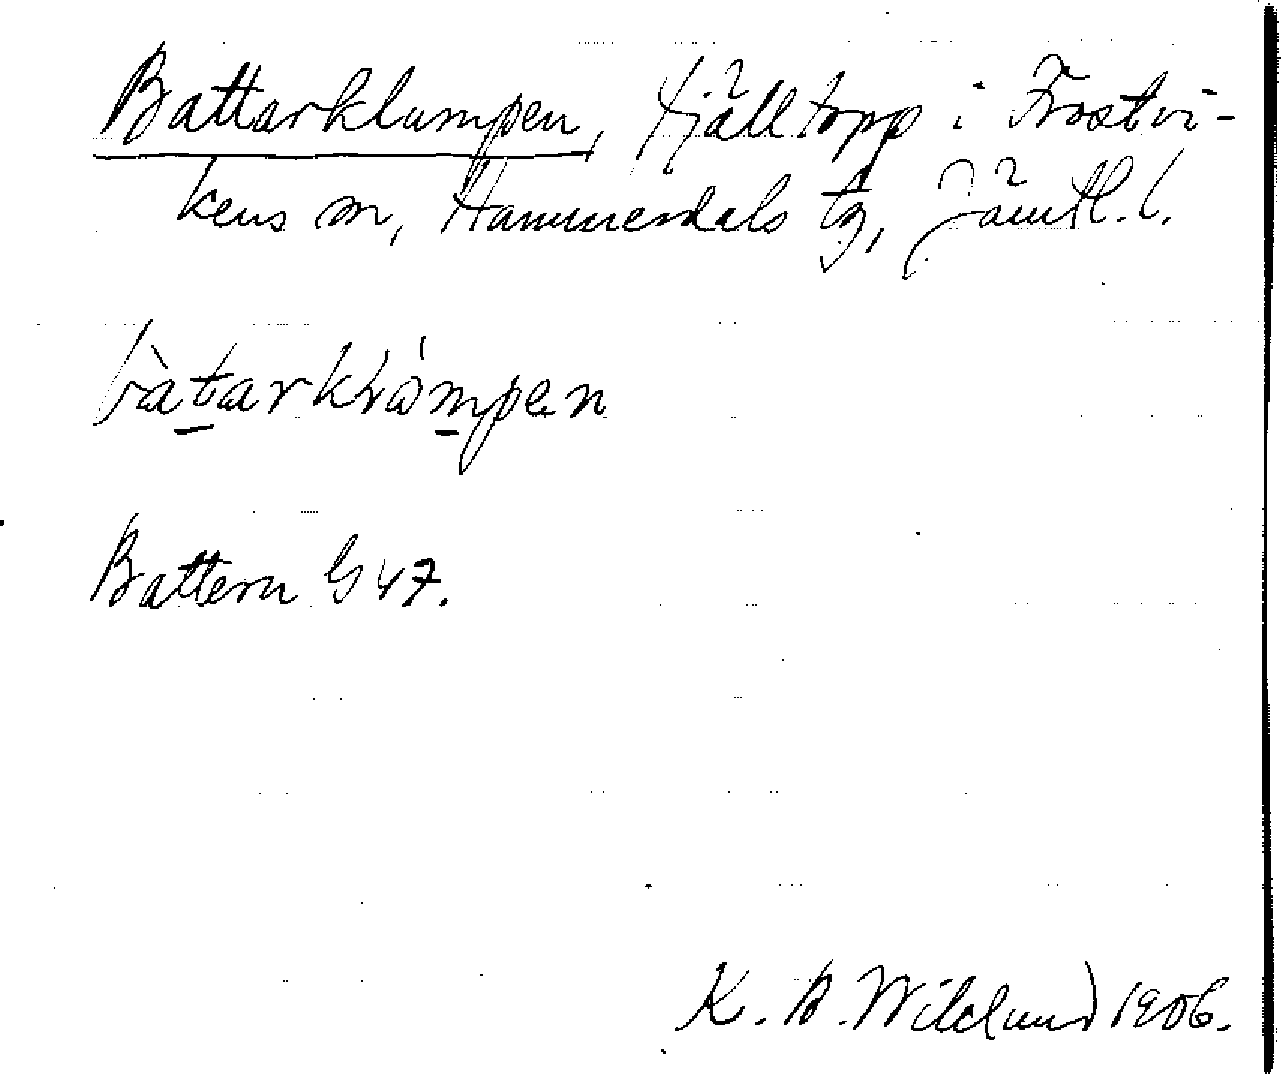 Battarklumpen, fjälltopp i Frostvi-
kens sn, Hammerdals tg, Jämtl. l.
bàtarklómpen
Battern G 47.
K. B. Wiklund 1906.